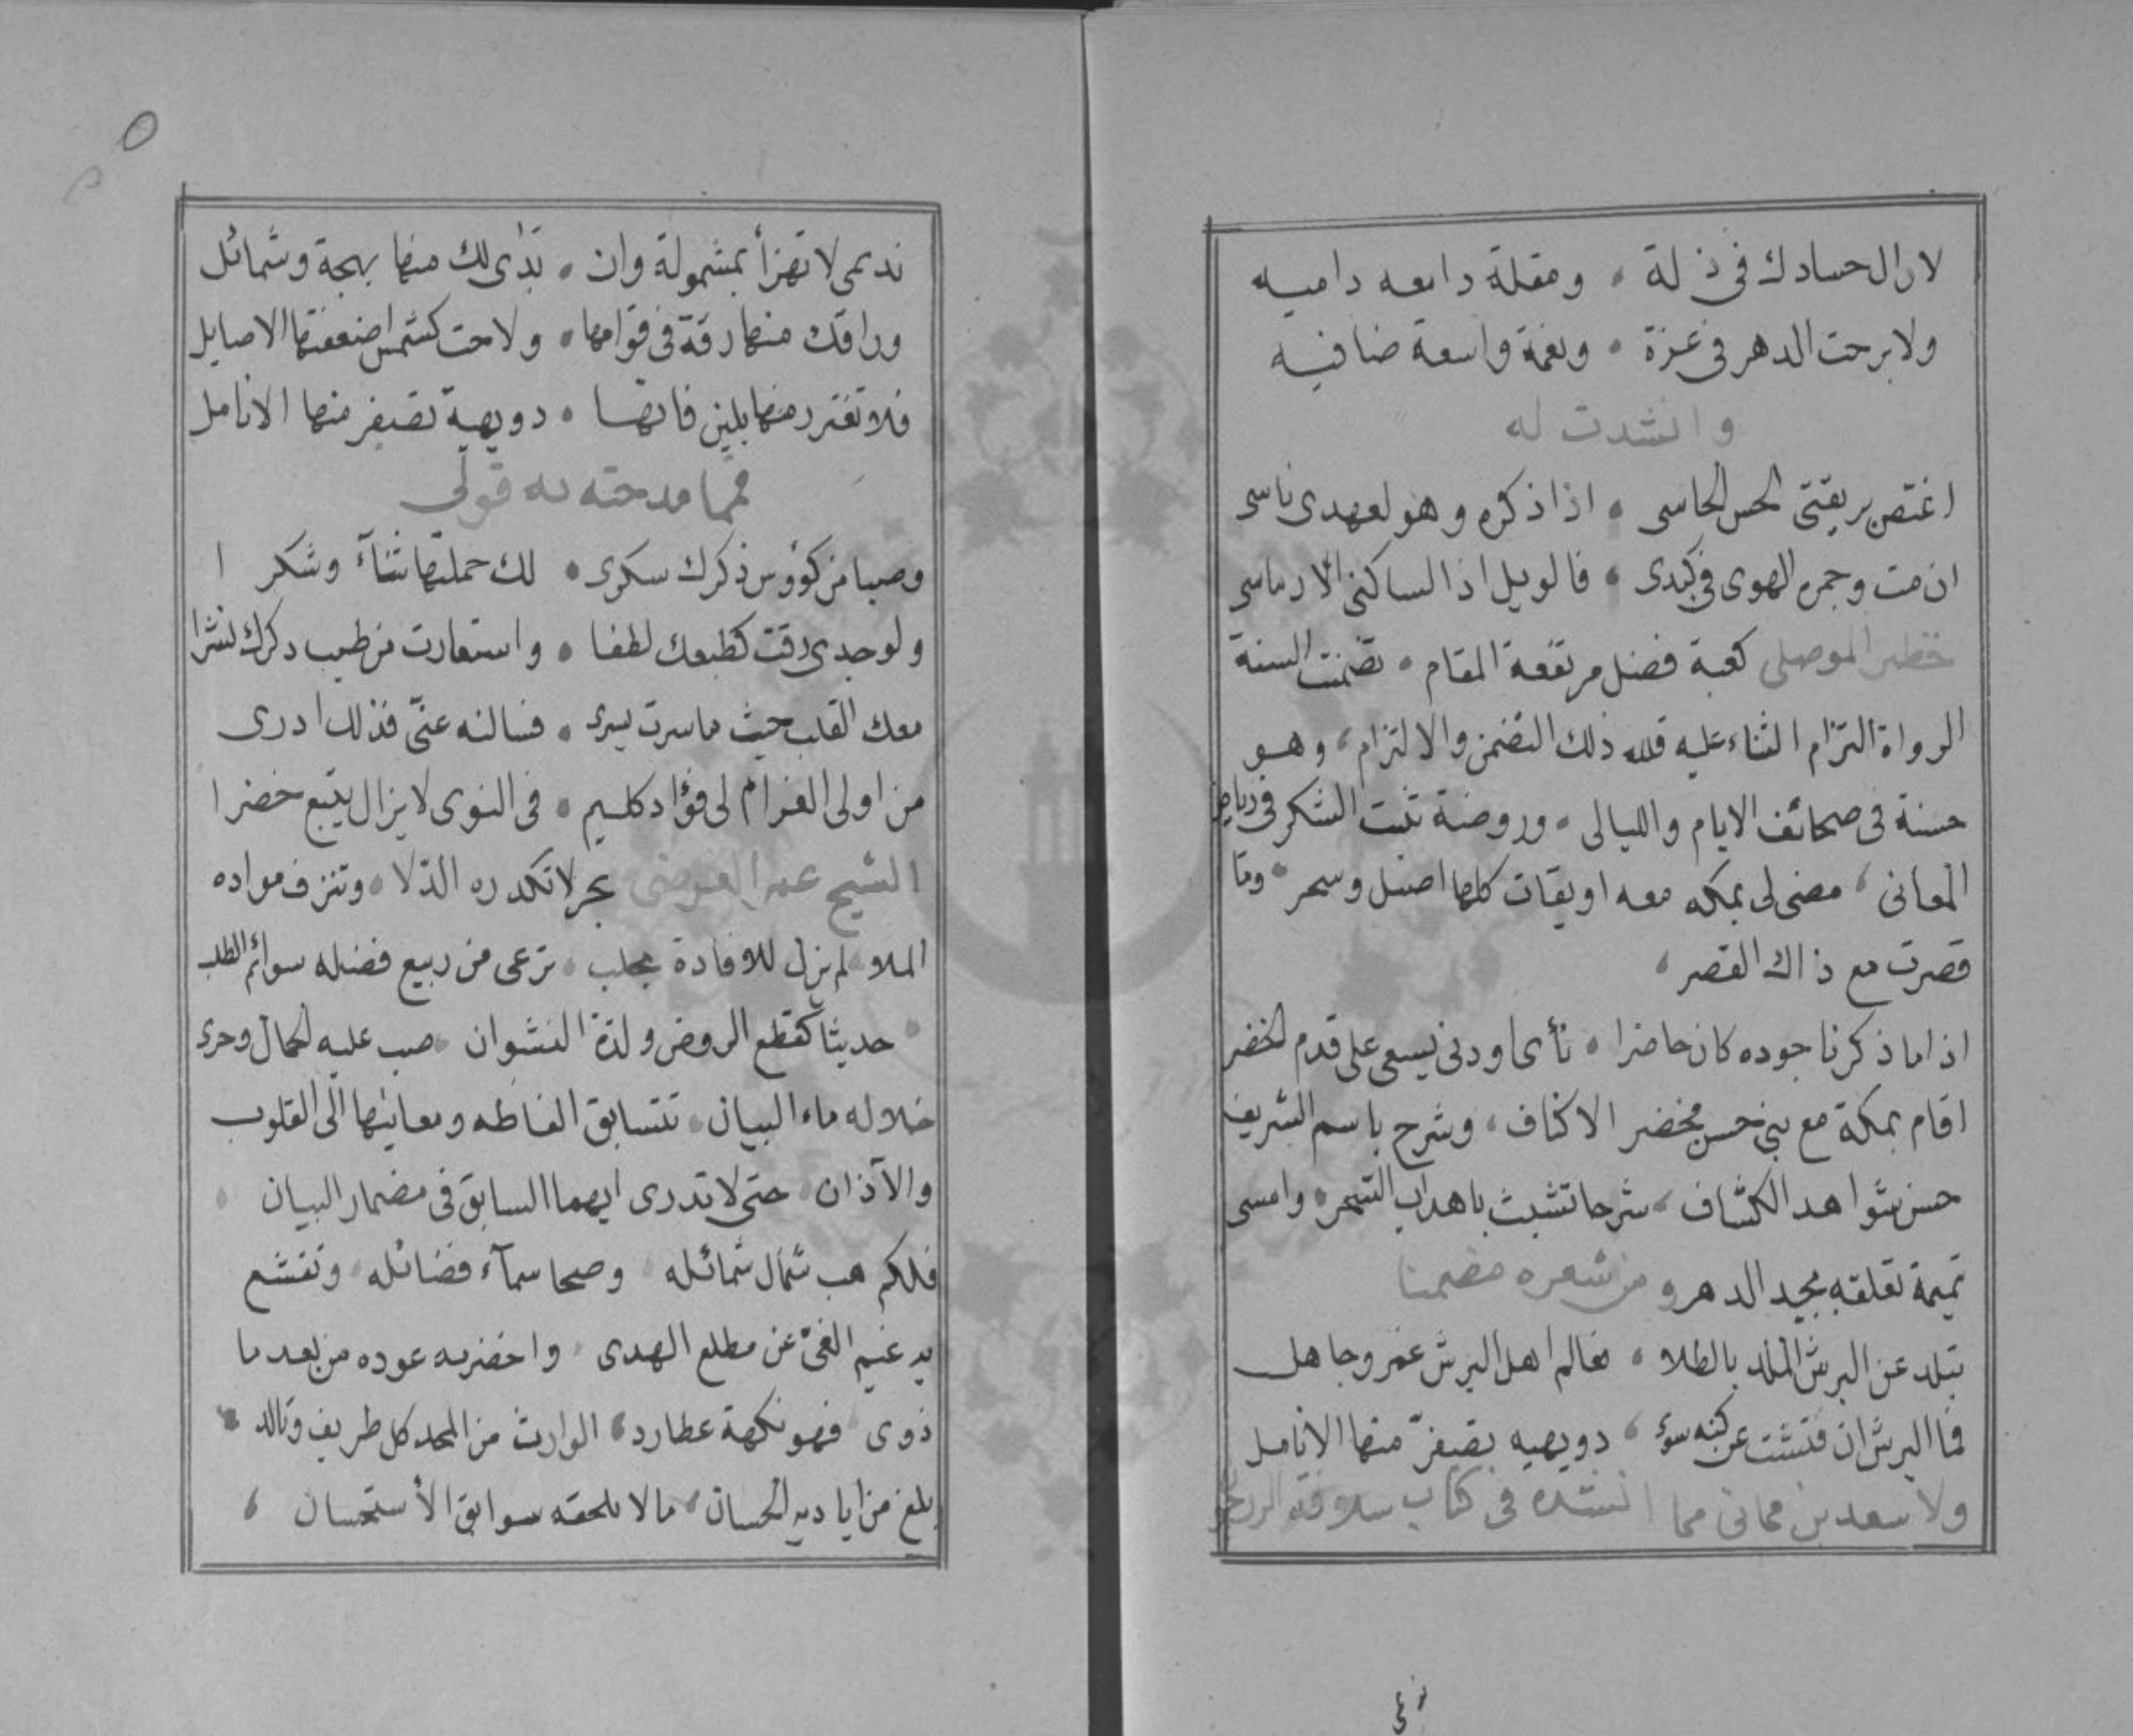 لازال حسادك في ذلة ، ومقلة دامعه داميه
ولا برحت الدهر في عزة ، ونعمة واسعة ضافيه
وانشدت له
اغتص بريقتي الحاسى ، اذا ذكره وهو لعهدى ناسى
ان مت وجمره الهوى في كبدى ، فالويل اذا لساكنى الارماسى
خضر الموصلى كعبة فضل مرتفعة المقام ، تضمنت السنة
الرواة التزام الثناء عليه فلله ذلك التضمن والالتزام ، وهو
حسنة في صحائف الايام والليالى ، وروضة تنبت الشكر في رياض
المعانى ، مضى لى بمكه معه اويقات كلها اصيل وسحر ، وما
قصرت مع ذاك القصر ،
اذا ما ذكرنا جوده كان حاضرا ، نأى او دنى يسعى على قدم الخضر
اقام بمكة مع بنى حسن مخضر الاكناف ، وشرح باسم الشريف
حسن شواهد الكشاف ، شرحا تشبث باهداب السحر ، وامسى
تميمة تعلقه بجيد الدهر ومن شعره مضمنا
تبلد عن البرش المبلد بالطلا ، فعالم اهل البرش غمر وجاهل
فما البرش ان فتشت عن كنه سوء ، دويهيه تصيفر منها الانامل
ولاسعد بن مماتى مما انشده في كتاب سلافة
نديمى لا تهزأ بمشمولة وان ، تبدى لك منها بهجة وشمائل
وراقك منها رقة في قوامها ، ولاحت كشمس اضعفتها الاصايل
فلا تغترر منها بلين فانها ، دويهية تصيفر منها الانامل
فمما مدحته به قولى
وصبا من كؤوس ذكرك سكرى ، لك حملتها ثناء وشكرا
ولوجدى رقت كطبعك لطفا ، واستعارت من طيب ذكرك نشرا
معك القلب حيث ما سرت يسرى ، فسالنه عنى فذلك ادرى
من اولى الغرام لى فؤاد كليم ، في النوى لا يزال يتبع خضرا
الشيخ عمر العرضى بحر لا تكدره الدلا ، وتنزف مواده
الملا ، لم يزل للافادة بحلب ، ترعى من ربيع فضله سوائم الطلب
، حديثا كقطع الروض ولذة النشوان ، صب عليه الجمال وجرى
خلاله ماء البيان ، تتسابق الفاظه ومعانيها الى القلوب
والآذان ، حتى لا تدرى ايهما السابق في مضمار البيان ،
فلكم هب شمال شمائله ، وصحا سماء فضائله ، وتقشع
به غيم الغى عن مطلع الهدى ، واخضر به عوده من بعد ما
ذوى ، فهو نكهة عطارد ، الوارث من المجد كل طريف وتالد ،
بلغ من اياديه الحسان ، مالا يلحقه سوابق الأستحسان ،